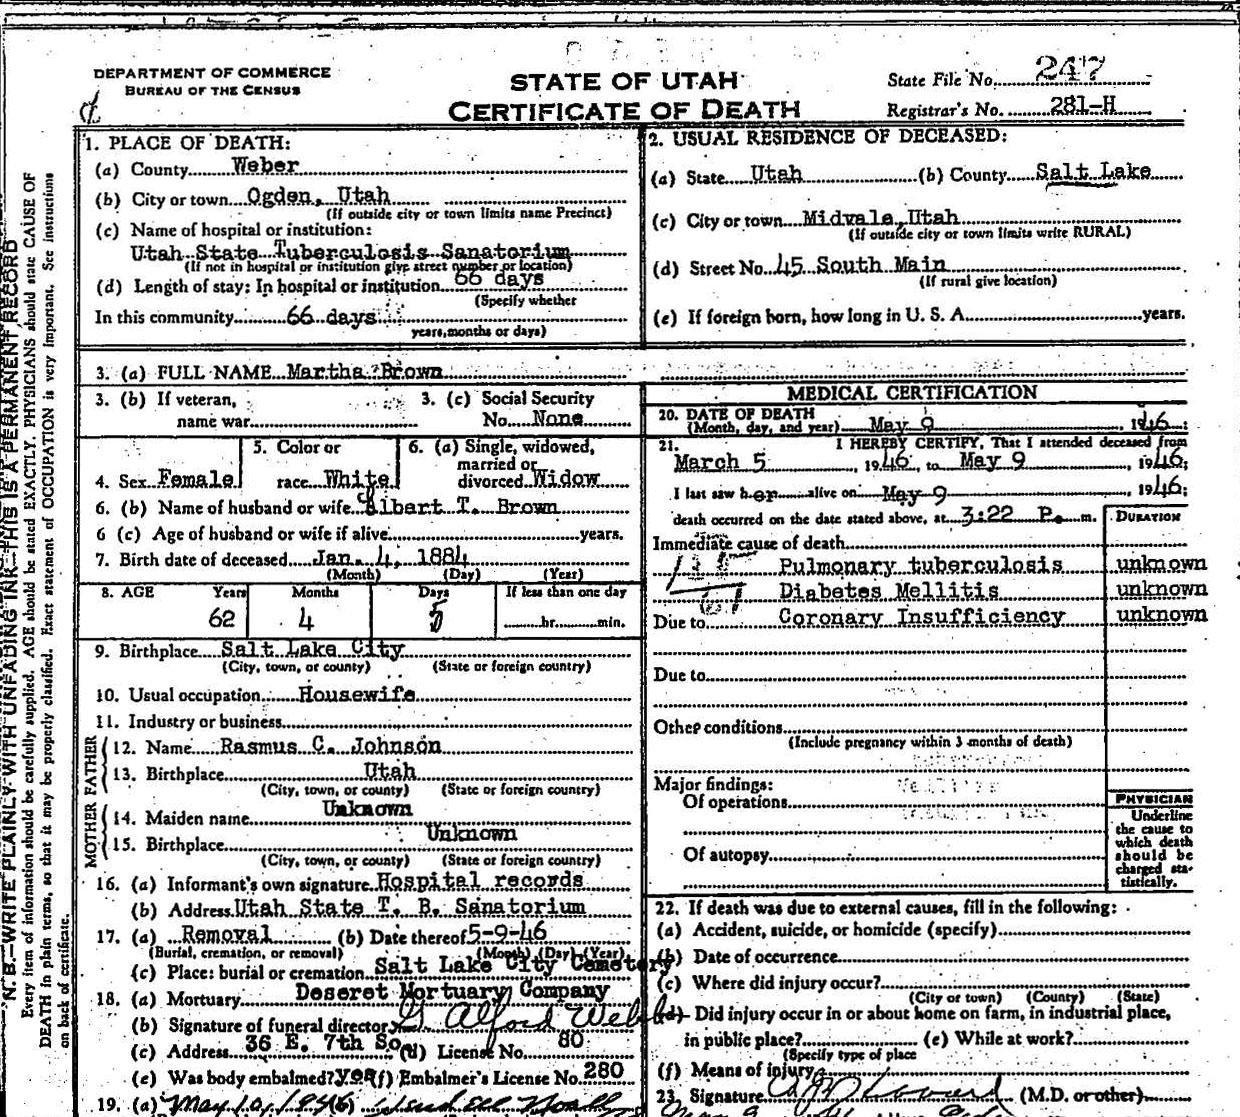 DEPARTMENT OF COMMERCE
BUREAU OF THE CENSUS
STATE OF UTAH
CERTIFICATE OF DEATH
State File No. 247
Registrar's No. 281-H
N. B.—WRITE PLAINLY WITH UNFADING INK—THIS IS A PERMANENT RECORD
Every item of information should be carefully supplied. AGE should be stated EXACTLY. PHYSICIANS should state CAUSE OF
DEATH in plain terms, so that it may be properly classified. Exact statement of OCCUPATION is very important. See instructions
on back of certificate.
1. PLACE OF DEATH:
(a) County Weber
(b) City or town Ogden, Utah
(If outside city or town limits name Precinct)
(c) Name of hospital or institution:
Utah State Tuberculosis Sanatorium
(If not in hospital or institution give street number or location)
(d) Length of stay: In hospital or institution 66 days
(Specify whether
In this community 66 days
years, months or days)
2. USUAL RESIDENCE OF DECEASED:
(a) State Utah (b) County Salt Lake
(c) City or town Midvale, Utah
(If outside city or town limits write RURAL)
(d) Street No. 45 South Main
(If rural give location)
(e) If foreign born, how long in U. S. A. years.
3. (a) FULL NAME Martha Brown
3. (b) If veteran, name war
3. (c) Social Security No. None
4. Sex Female
5. Color or race White
6. (a) Single, widowed, married or divorced Widow
6. (b) Name of husband or wife Albert T. Brown
6 (c) Age of husband or wife if alive years.
7. Birth date of deceased Jan. 4, 1884
(Month) (Day) (Year)
8. AGE Years Months Days If less than one day
62 4 5 hr. min.
9. Birthplace Salt Lake City
(City, town, or county) (State or foreign country)
10. Usual occupation Housewife
11. Industry or business
FATHER
12. Name Rasmus C. Johnson
13. Birthplace Utah
(City, town, or county) (State or foreign country)
MOTHER
14. Maiden name Unknown
15. Birthplace Unknown
(City, town, or county) (State or foreign country)
16. (a) Informant's own signature Hospital records
(b) Address Utah State T. B. Sanatorium
17. (a) Removal (b) Date thereof 5-9-46
(Burial, cremation, or removal) (Month) (Day) (Year)
(c) Place: burial or cremation Salt Lake City Cemetery
18. (a) Mortuary Deseret Mortuary Company
(b) Signature of funeral director Alford
(c) Address 36 E. 7th So. (d) License No. 80
(e) Was body embalmed? yes (f) Embalmer's License No. 280
19. (a) May 10, 1946 (b)
MEDICAL CERTIFICATION
20. DATE OF DEATH
(Month, day, and year) May 9 1946
21. I HEREBY CERTIFY, That I attended deceased from
March 5, 1946, to May 9 1946;
I last saw her alive on May 9, 1946;
death occurred on the date stated above, at 3:22 P. m.
DURATION
Immediate cause of death
Pulmonary tuberculosis unknown
Diabetes Mellitis unknown
Due to Coronary Insufficiency unknown
Due to
Other conditions
(Include pregnancy within 3 months of death)
Major findings:
Of operations
Of autopsy
PHYSICIAN
Underline
the cause to
which death
should be
charged sta-
tistically.
22. If death was due to external causes, fill in the following:
(a) Accident, suicide, or homicide (specify)
(b) Date of occurrence
(c) Where did injury occur?
(City or town) (County) (State)
(d) Did injury occur in or about home on farm, in industrial place,
in public place? (e) While at work?
(Specify type of place
(f) Means of injury
23. Signature (M.D. or other)